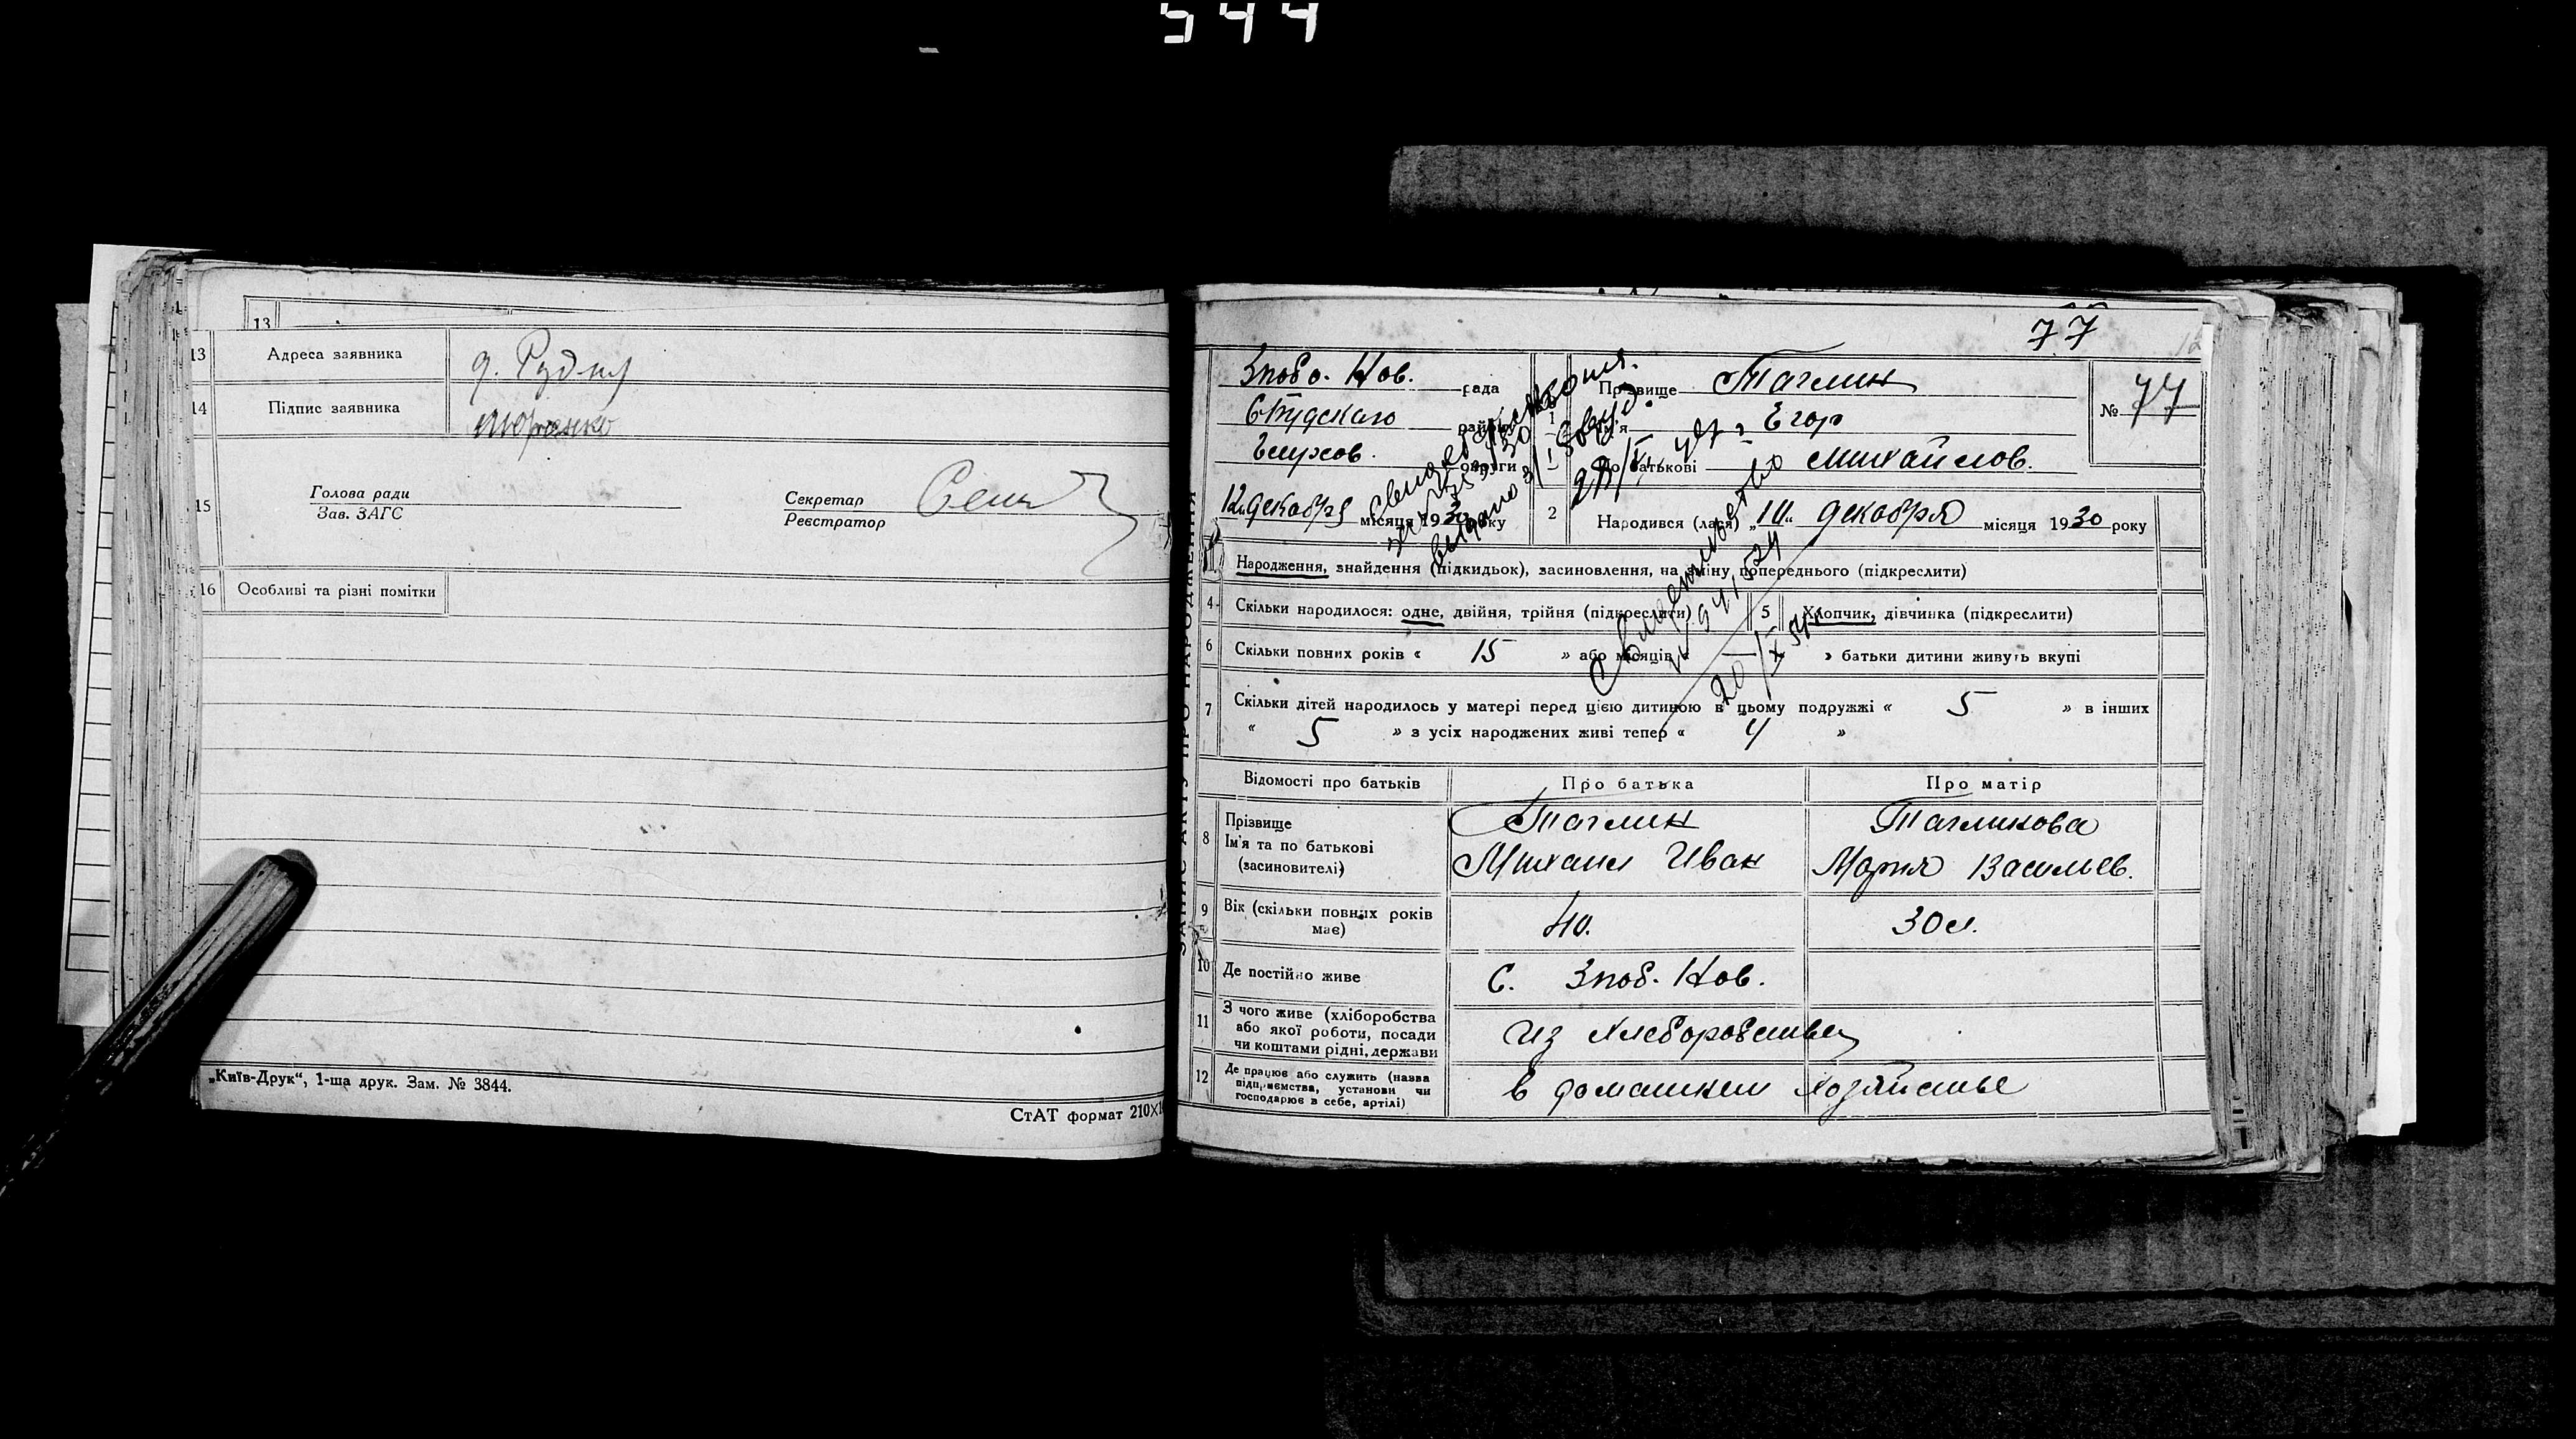 544
13
13 Адреса заявника д. Рудня
14 Підпис заявника
15 Голова ради
Зав. ЗАГС
Секретар
Реєстратор
16 Особливі та різні помітки
„Київ-Друк“, 1-ша друк. Зам. № 3844.
СтАТ формат 210×1
77
ЗАПИС АКТУ ПРО НАРОДЖЕННЯ
Зноб. Нов. рада
району
Глухов. округи
12 декабря місяця 1930 року
1 Прізвище Таглин
Ім'я Егор
По батькові Михайлов.
№ 77
2 Народився (лася) „10“ декабря місяця 1930 року
Народження, знайдення (підкидьок), засиновлення, на зміну попереднього (підкреслити)
4 Скільки народилося: одне, двійня, трійня (підкреслити) 5 Хлопчик, дівчинка (підкреслити)
6 Скільки повних років « 15 » або місяців « » батьки дитини живуть вкупі
7 Скільки дітей народилось у матері перед цією дитиною в цьому подружжі « 5 » в інших
« 5 » з усіх народжених живі тепер « 4 »
Відомості про батьків Про батька Про матір
8 Прізвище Таглин Тагликова
Ім'я та по батькові Михаил Иван Мария Васильев.
(засновителі)
9 Вік (скільки повних років має) 40. 30 л.
10 Де постійно живе С. Зноб. Нов.
11 З чого живе (хліборобства
або якої роботи, посади
чи коштами рідні, держави
из хлеборобства
12 Де працює або служить (назва
підприємства, установи чи
господарює в себе, артілі)
в домашнем хозяйстве
Свидетельство